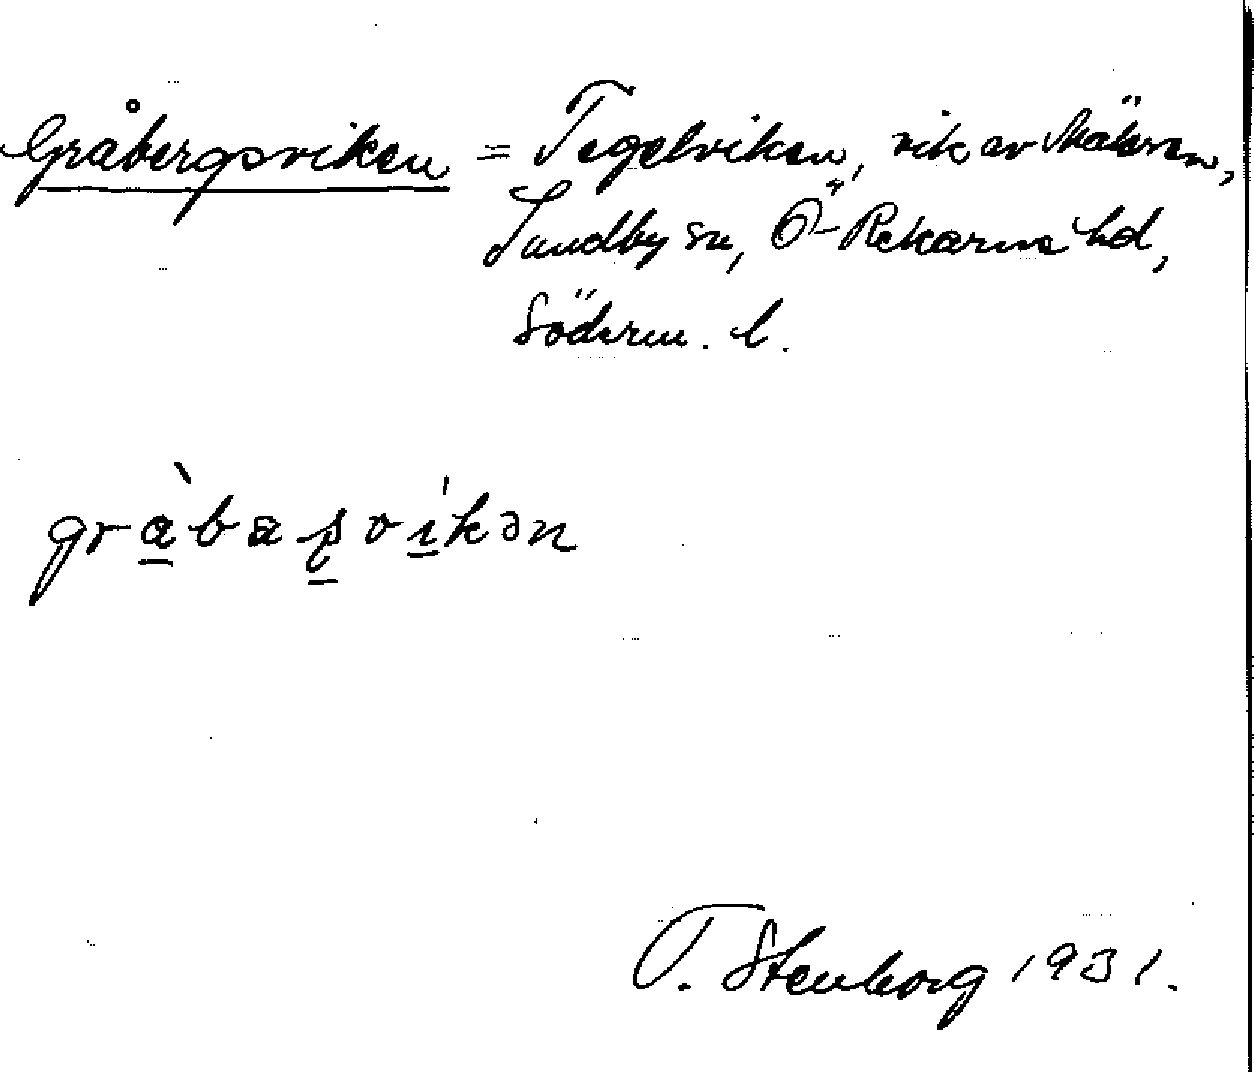 Gråbergsviken = Tegelviken, vik av Mälaren,
Sundby sn, Ö-Rekarne hd,
Söderm. l.
T. Stenborg 1931.